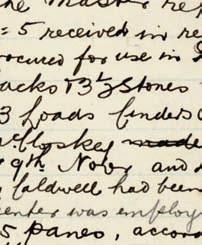 the Master re
= 5 received in re
rocured for use in
acks 13½ Stones
3 Loads finders
cCloskey made
9th Novr and
Caldwell had been
enter was employ
5 panes, accor